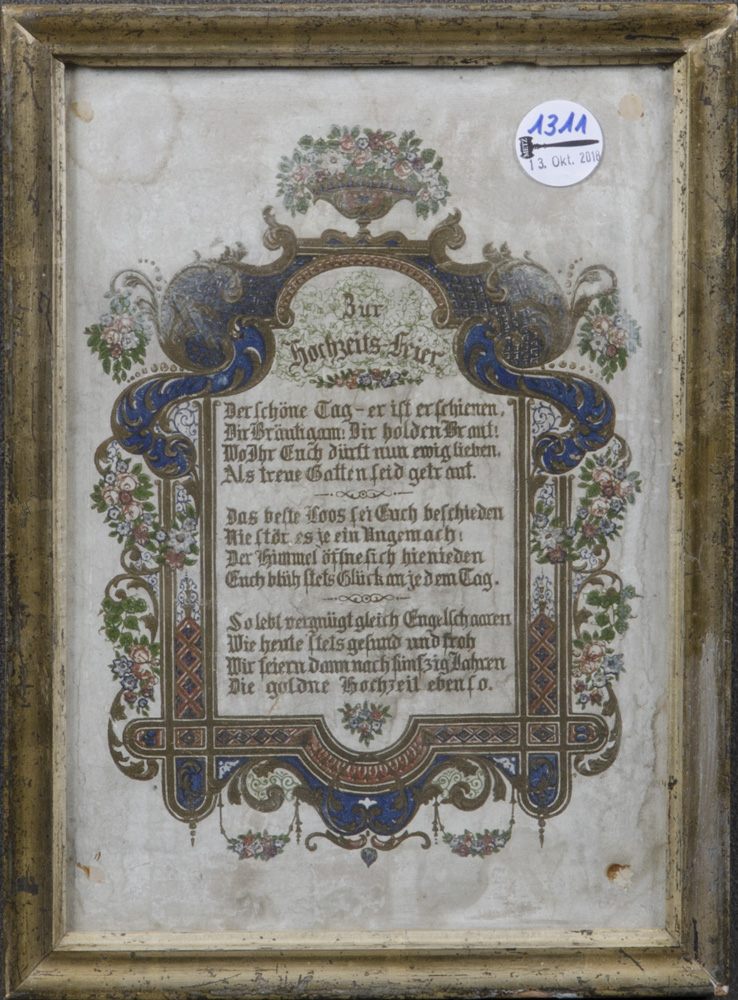 1311
METZ
13. Okt. 2018
Zur
Hochzeits-Feier
Der schöne Tag - er ist erschienen,
Dir Bräutigam: Dir holden Braut!
Wo Ihr Euch dürft nun ewig lieben,
Als treue Gatten seid getraut.
Das beste Loos sei Euch beschieden
Nie stör es je ein Ungemach:
Der Himmel öffne sich hienieden
Euch blüh stets Glück an jedem Tag.
So lebt vergnügt gleich Engelschaaren
Wie heute stets gesund und froh
Wir feiern dann nach fünfzig Jahren
Die goldne Hochzeit ebenso.